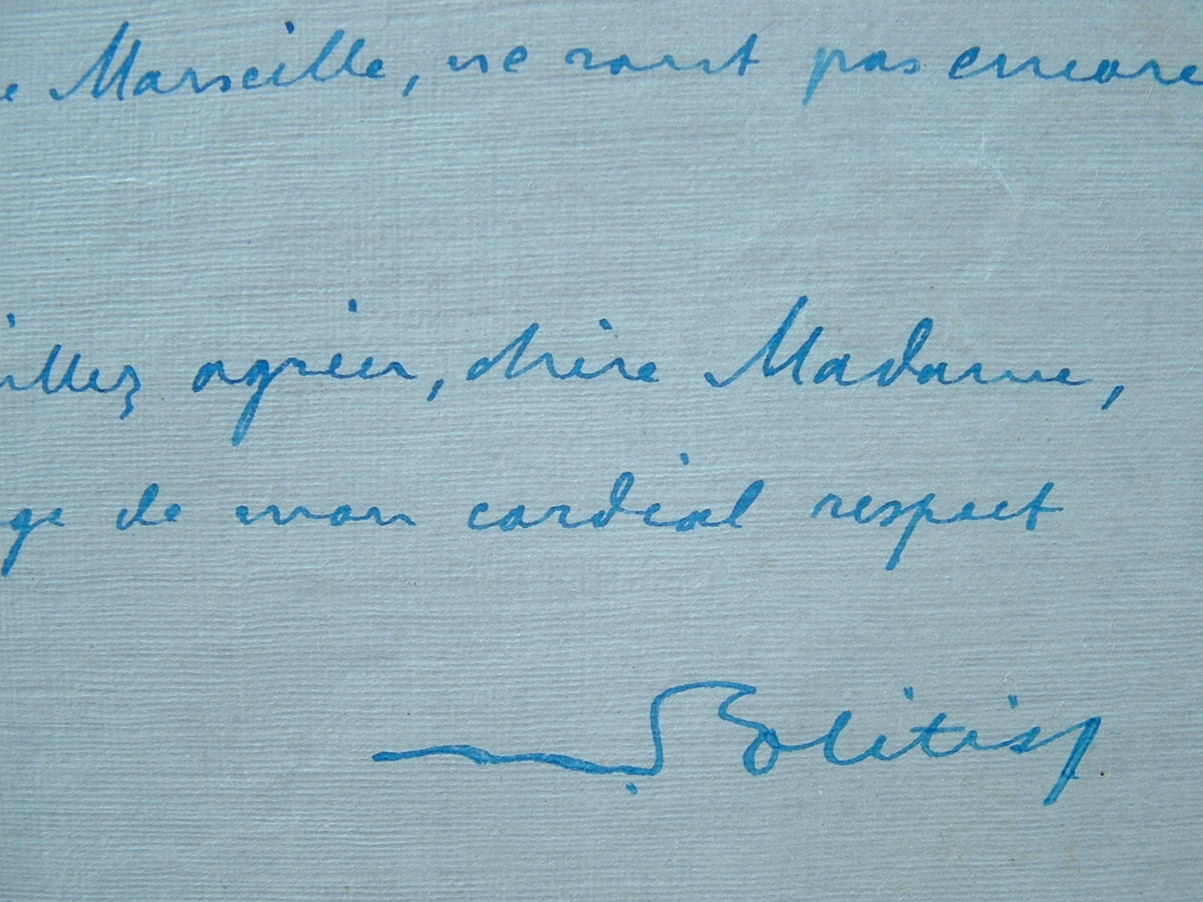 e Marseille, ne sont pas encore
illez agréer, chère Madame,
ge de mon cordial respect
Politis